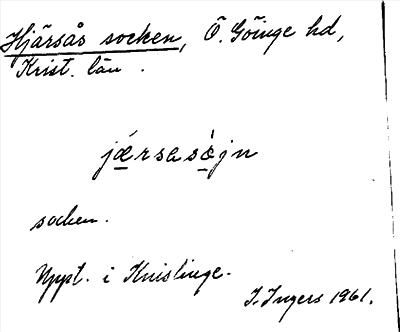 Hjärsås socken, Ö. Göinge hd,
Krist. län.
jǽrsasògn
socken.
Uppt. i Knislinge.
I. Ingers 1961.